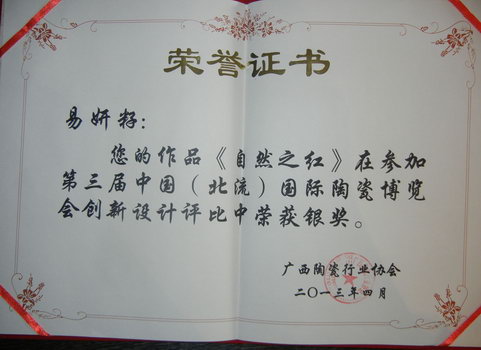 荣誉证书
易妍籽：
您的作品《自然之红》在参加
第三届中国（北流）国际陶瓷博览
会创新设计评比中荣获银奖。
广西陶瓷行业协会
二〇一三年四月